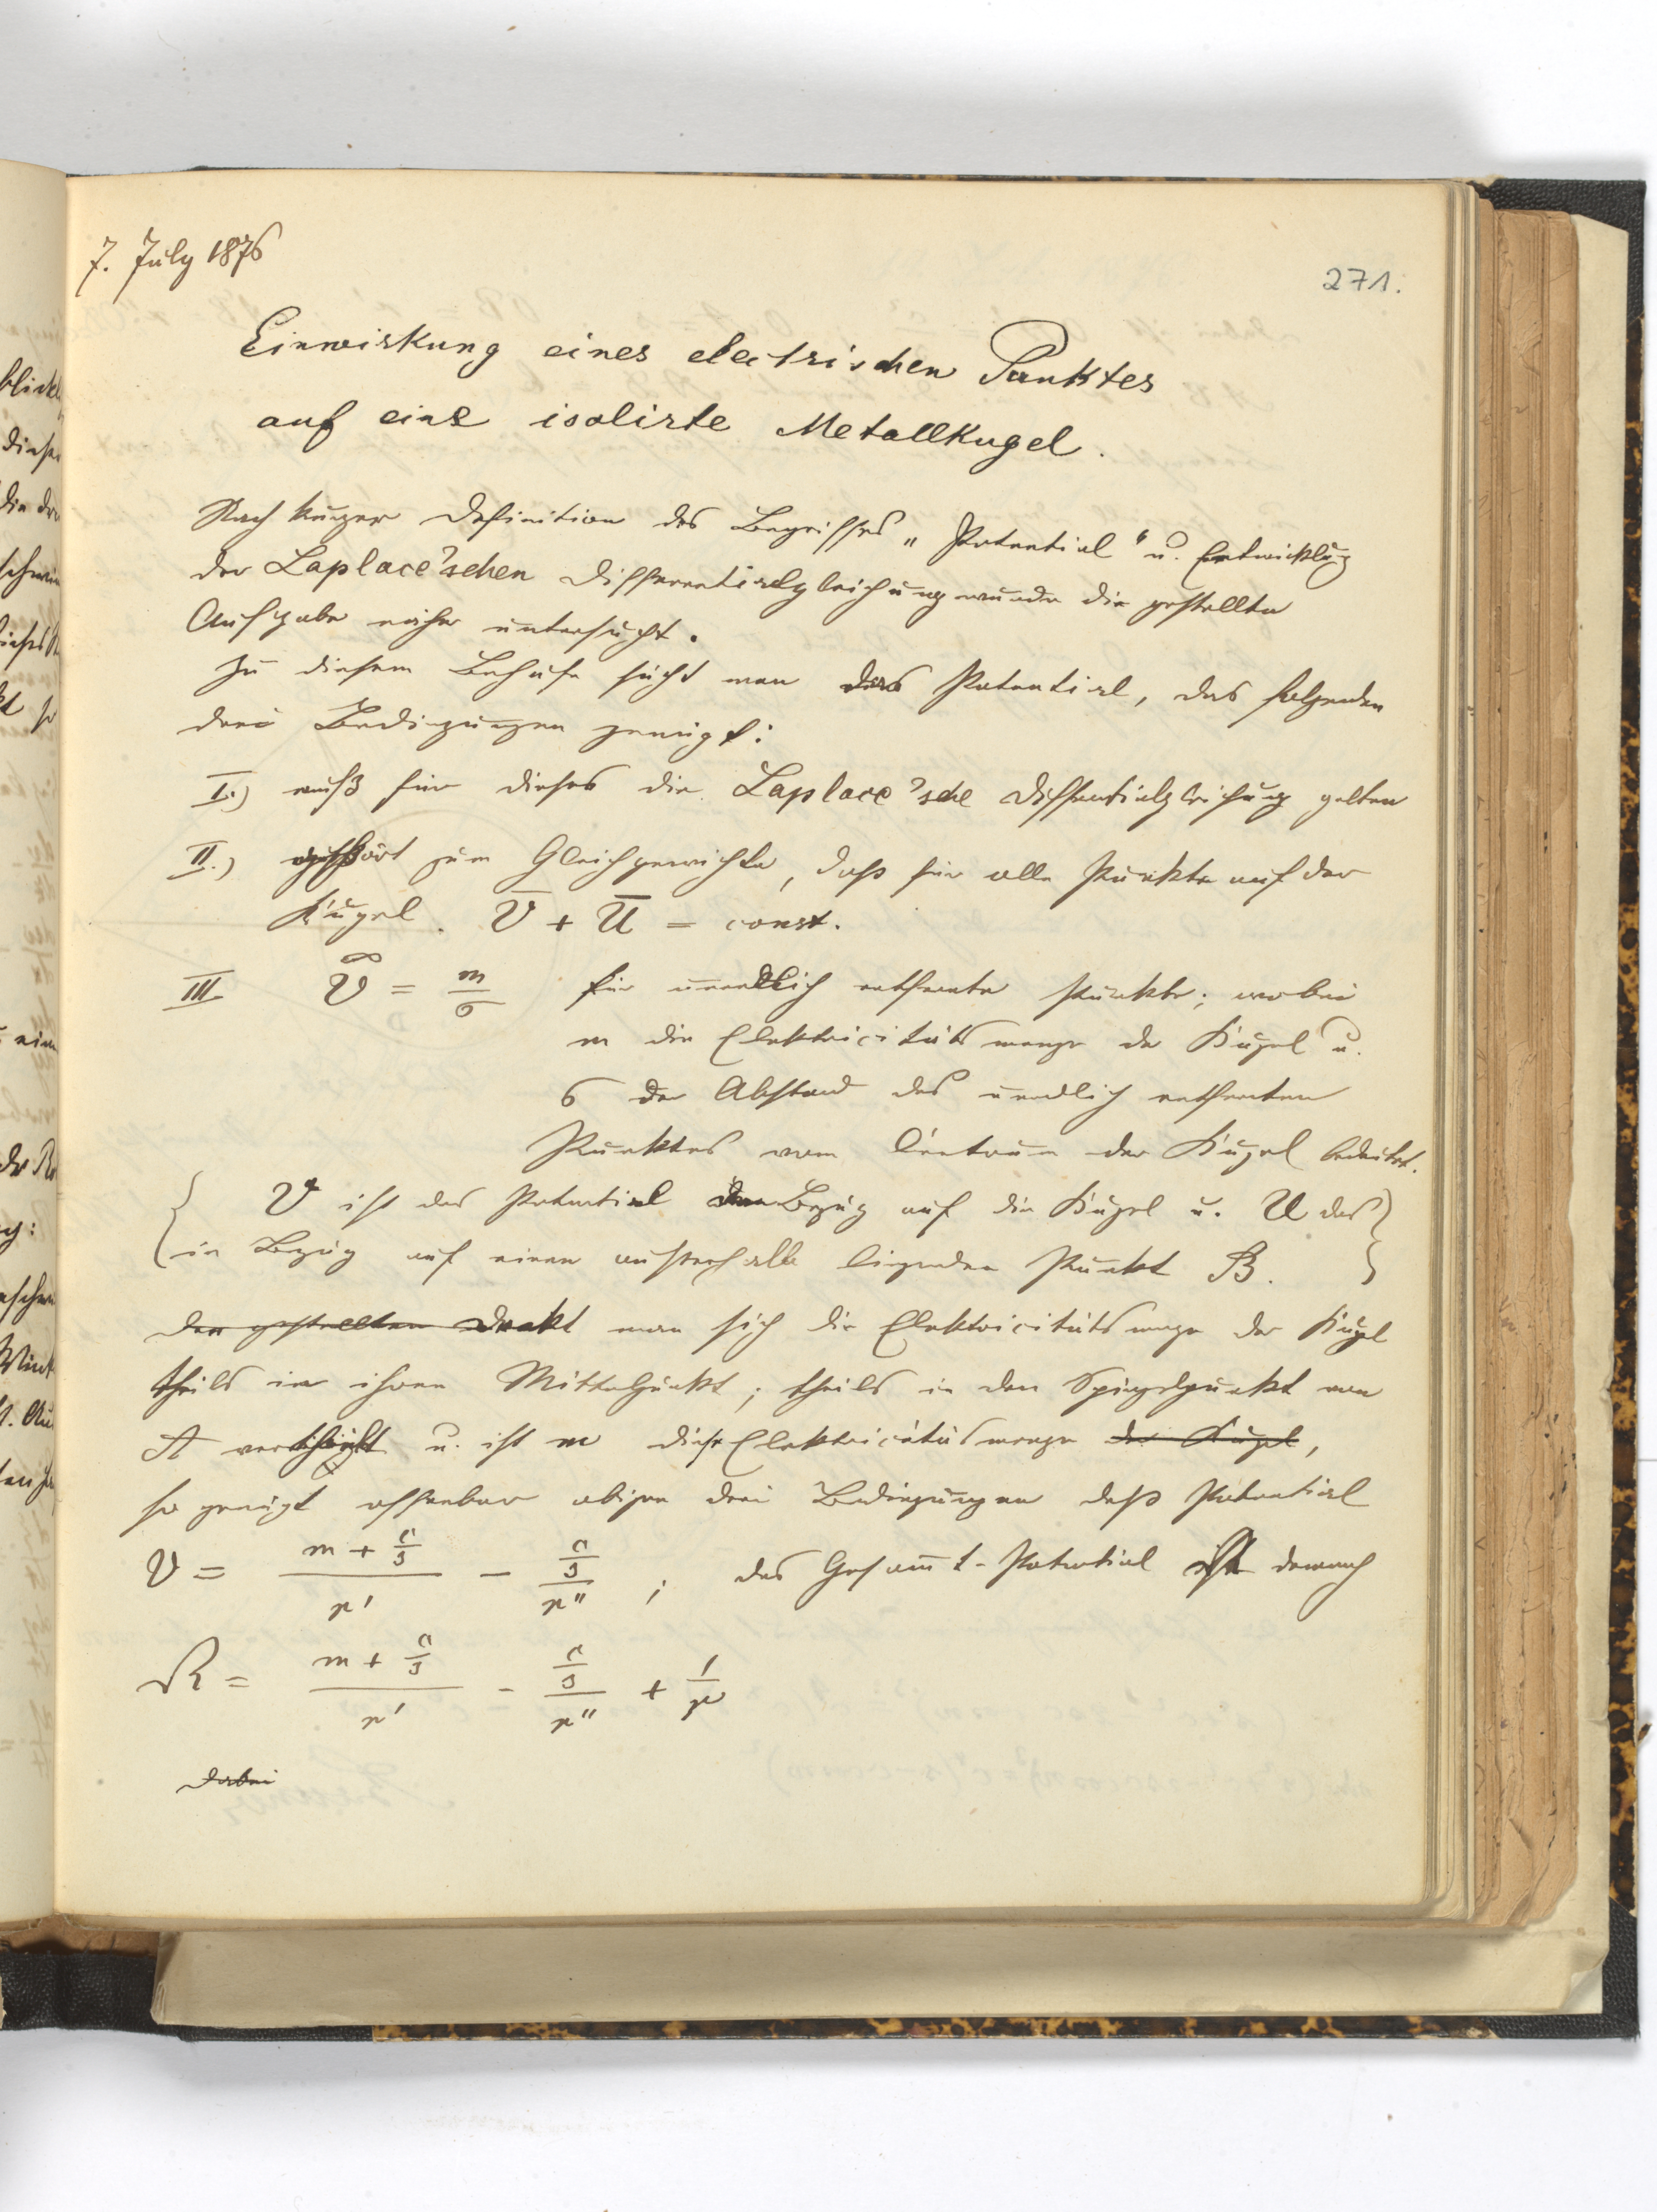 7. July 1876
271.
Einwirkung eines electrischen Punktes
auf eine isolirte Metallkugel.
Nach kurzer Definition des Begriffes „Potential“ u. Entwicklug
der Laplace'schen Differentialgleichung wurde die gestellte
Aufgabe näher untersucht.
Zu diesem Behufe sucht man das Potential, das folgenden
drei Bedingungen genügt:
I.) muß für dieses die Laplace'sche Diffentialgleichung gelten
II.) gehört zum Gleichgewichte, daß für alle Punkte auf der
Kugel. V̅ + U̅ = const.
III V^∞ = m/σ für unendlich entfernte Punkte; wobei
m die Elektricitätsmenge der Kugel u.
σ der Abstand des unendlich entfernten
Punktes vom Centrum der Kugel bedeutet.
{ V ist das Potential Bezug auf die Kugel u. U das }
{ in Bezug auf einen außerhalb liegenden Punkt B. }
Der gestellten Denkt man sich die Elektricitätsmenge der Kugel
theils in ihren Mittelpunkt; theils in den Spiegelpunkt von
A u. ist m diese Elektricitätsmenge der Kugel,
so genügt offenbar obigen drei Bedingungen das Potential
V = (m + c/s)/r' − (c/s)/r'' ; das Gesam̅t-Potential ist demnach
R = (m + c/s)/r' − (c/s)/r'' + 1/r
Dabei